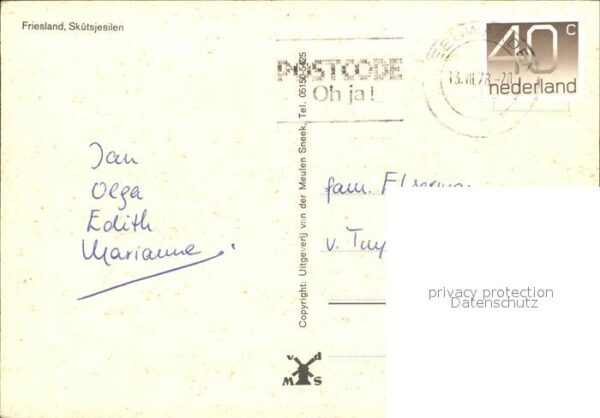 Friesland, Skûtsjesilen
POSTCODE
Oh ja!
13.VII.78.-20
40 c
nederland
Jan
Olga
Edith
Marianne.
fam.
v.
Copyright: Uitgeverij van der Meulen Sneek, Tel. 05150-5425
v d
M S
privacy protection
Datenschutz